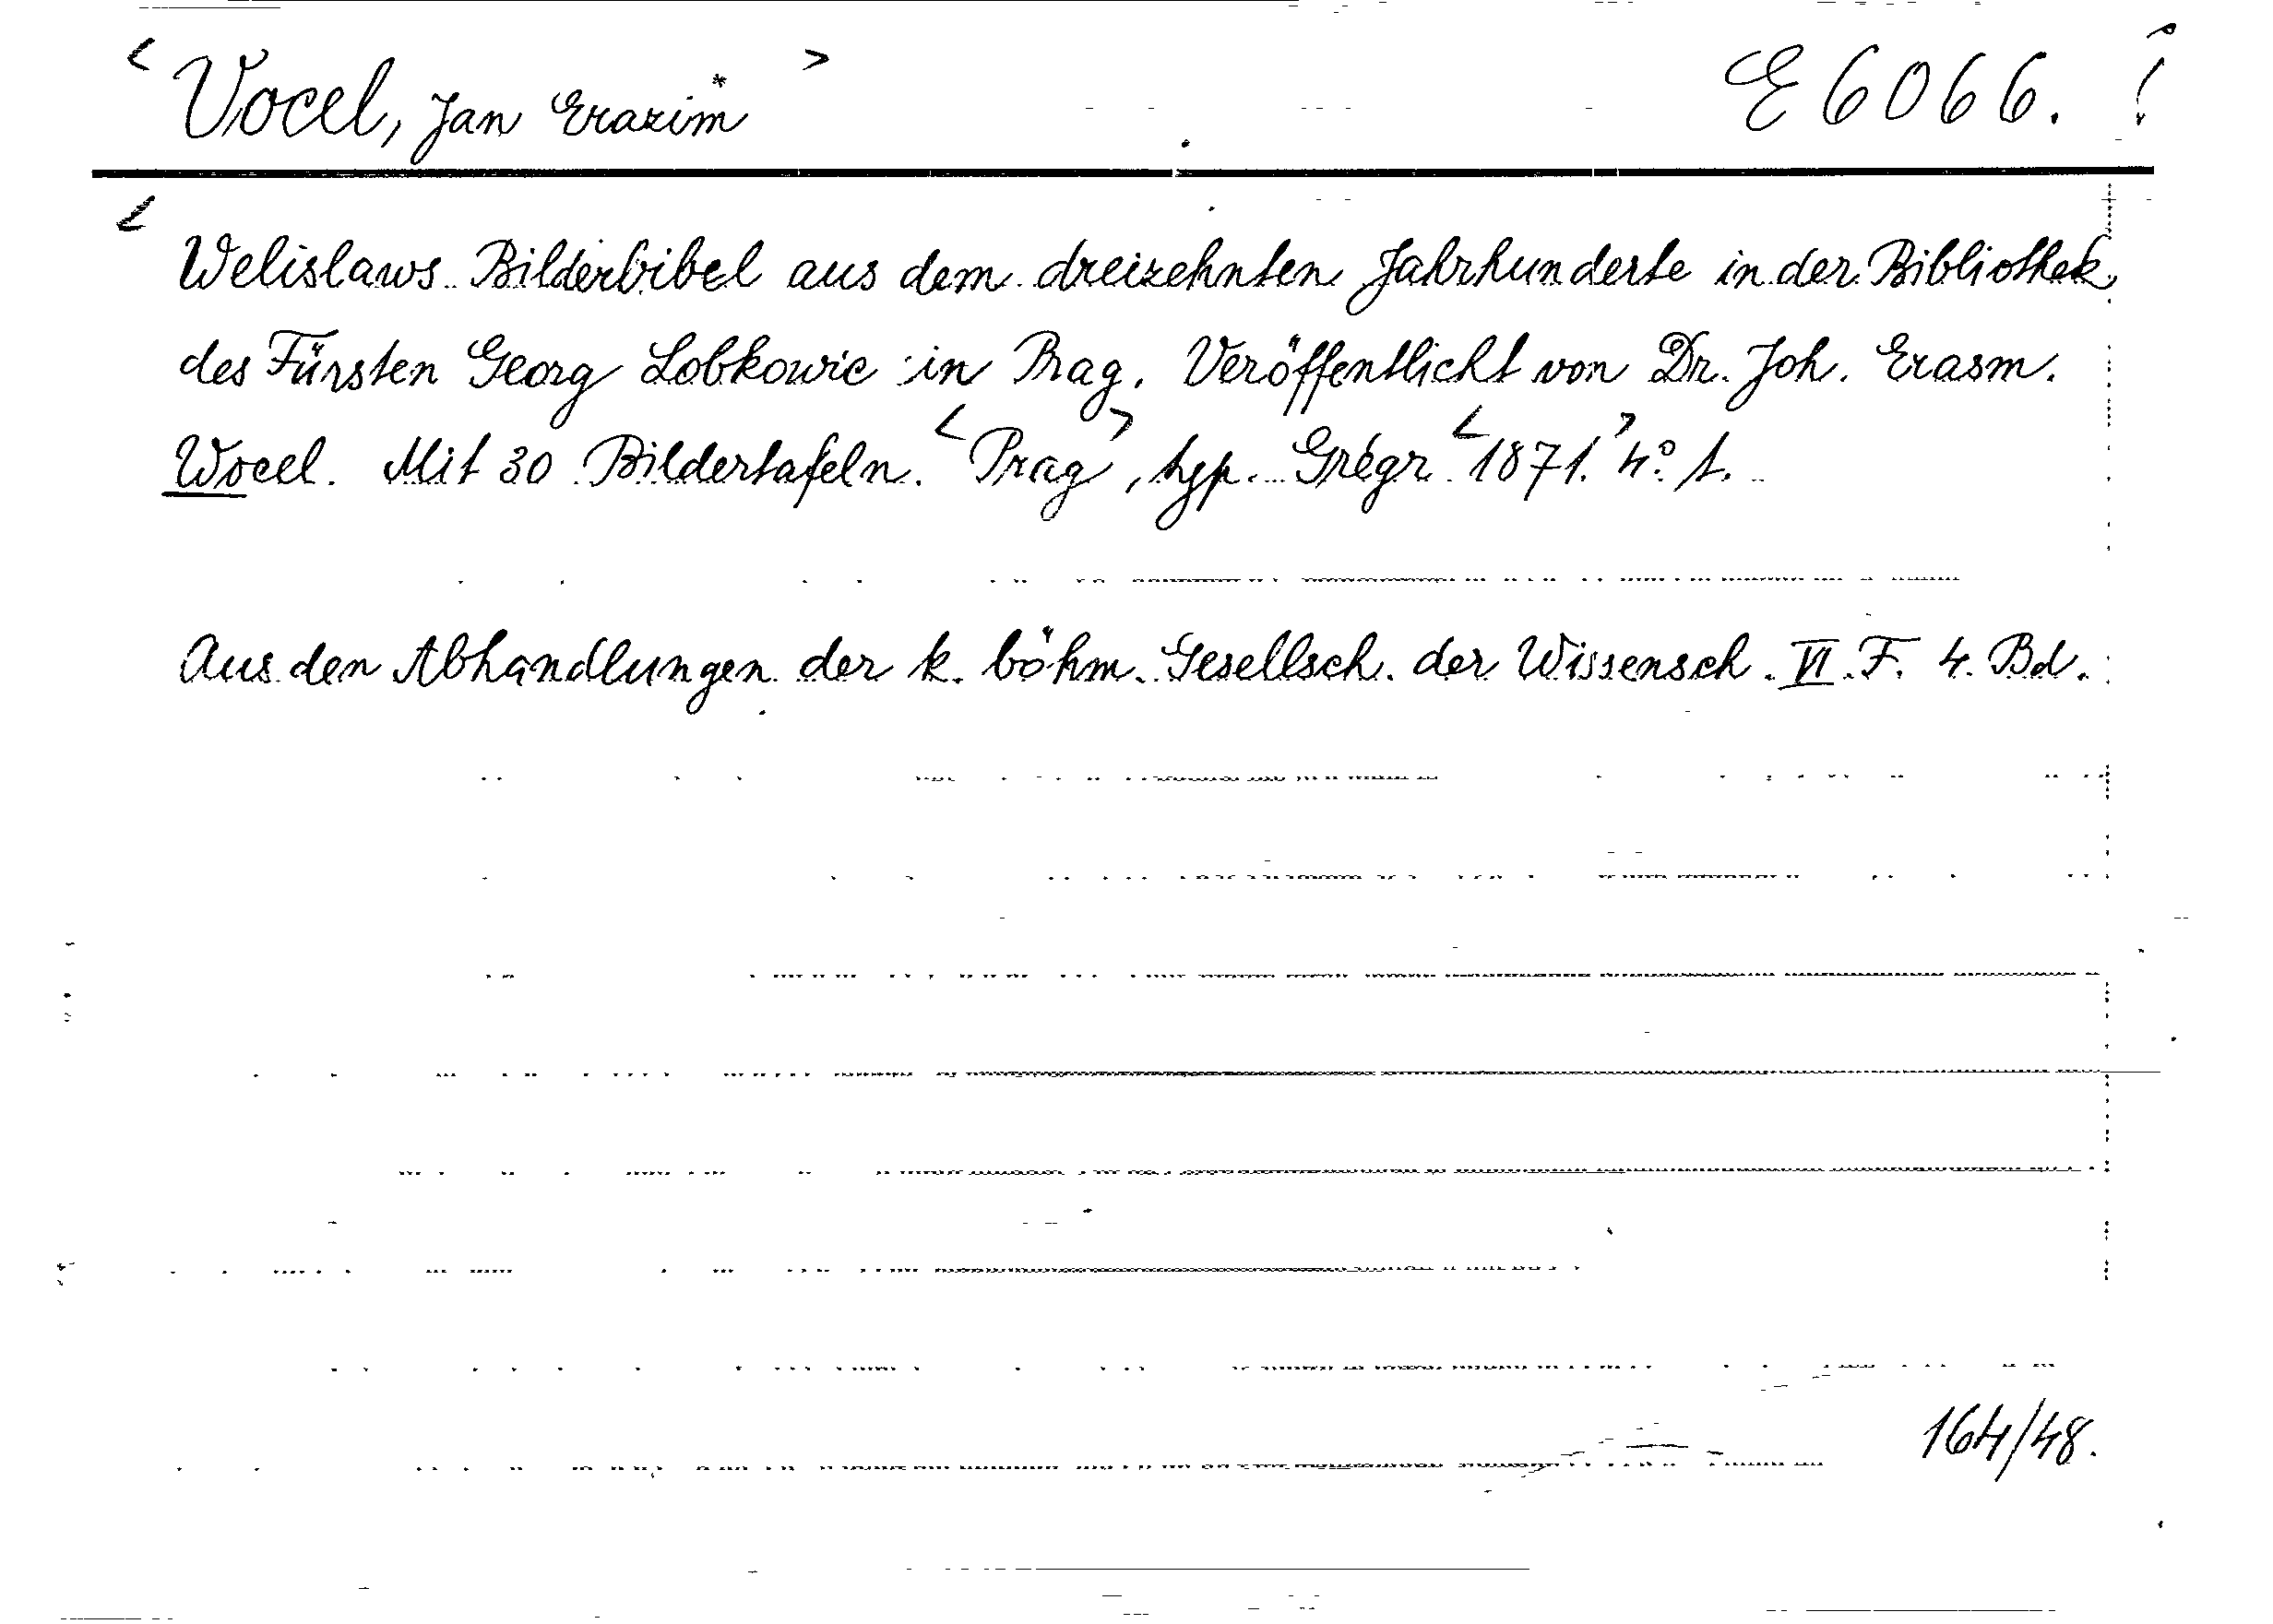 < Vocel, Jan Erazim * > E 6066. !
< Welislaws Bilderbibel aus dem dreizehnten Jahrhunderte in der Bibliothek
des Fürsten Georg Lobkowic in Prag. Veröffentlicht von Dr. Joh. Erasm.
Wocel. Mit 30 Bildertafeln. <Prag>, typ. Grégr <1871.> 4° 1.
Aus den Abhandlungen der k. böhm. Gesellsch. der Wissensch. VI. F. 4. Bd.
164/48.